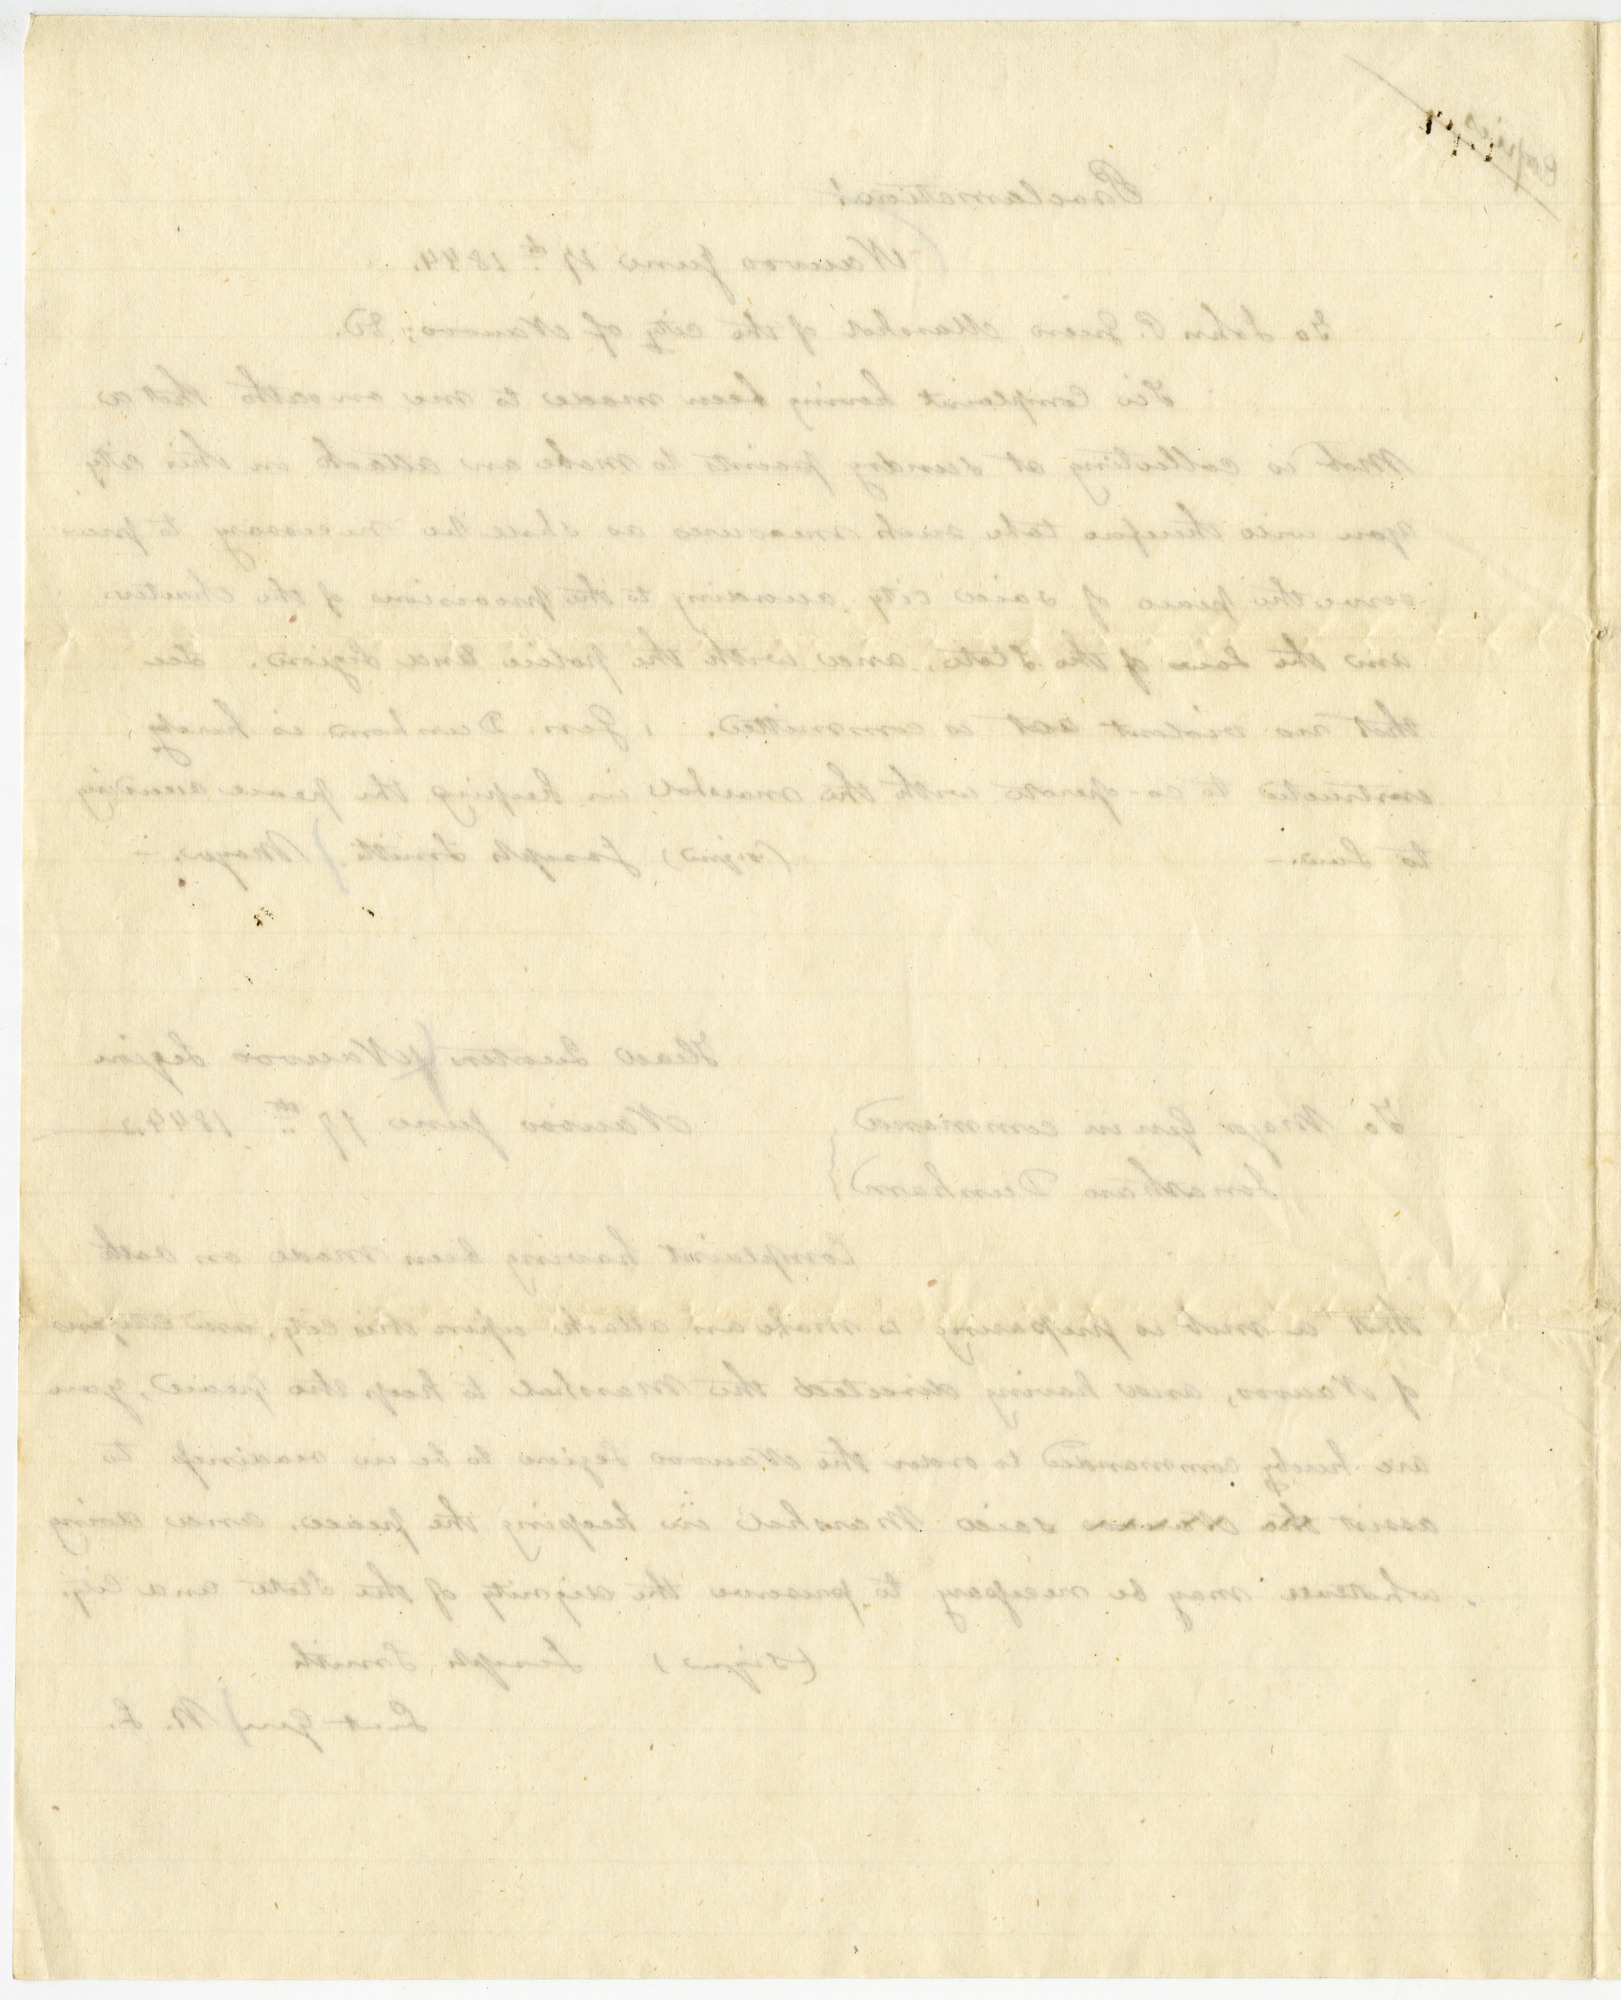 copied
Proclamation
Nauvoo June 17th 1844.
To John P. Green Marshal of the city of Nauvoo;
Sir Complaint having been made to me on oath that a
Mob is collecting at sundry points to make an attack on this city
you will therefore take such measures as shall be necessary to pre-
serve the peace of said city according to the provisions of the Charter
and the Laws of the State, and with the police and Legion. See
that no violent act is committed. Gen Dunham is hereby
instructed to co-operate with the marshal in keeping the peace according
to Law.— (signed) Joseph Smith Mayor.—
Head Quarters Nauvoo Legion
To Major Gen in command Nauvoo June 17th 1844
Jonathan Dunham
Complaint having been made on oath
that a mob is preparing to make an attack upon this city, and citizens
of Nauvoo, and having directed the Marshal to keep the peace, you
are hereby commanded to order the Nauvoo Legion to be in readiness to
assist the said Marshal in keeping the peace, and doing
whatever may be necessary to preserve the dignity of the State and City.
(signed) Joseph Smith
Lieut Gen N. L.